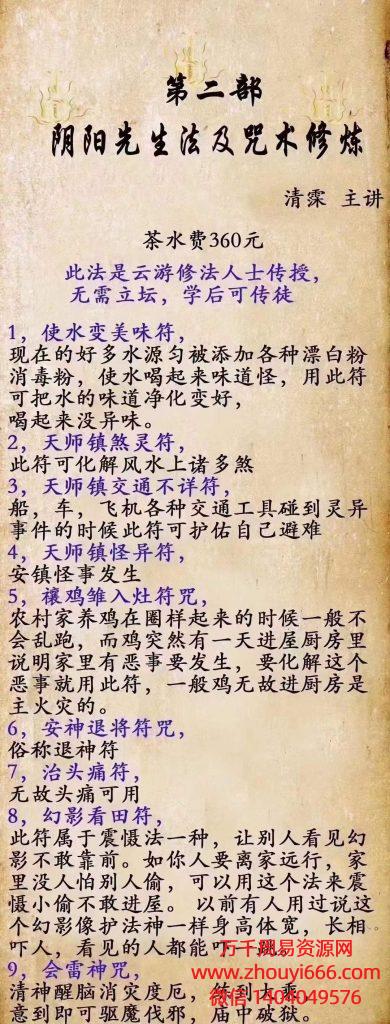 第二部
阴阳先生法及咒术修炼
清霂 主讲
茶水费360元
此法是云游修法人士传授，
无需立坛，学后可传徒
1，使水变美味符，
现在的好多水源匀被添加各种漂白粉
消毒粉，使水喝起来味道怪，用此符
可把水的味道净化变好，
喝起来没异味。
2，天师镇煞灵符，
此符可化解风水上诸多煞
3，天师镇交通不详符，
船，车，飞机各种交通工具碰到灵异
事件的时候此符可护佑自己避难
4，天师镇怪异符，
安镇怪事发生
5，禳鸡雏入灶符咒，
农村家养鸡在圈样起来的时候一般不
会乱跑，而鸡突然有一天进屋厨房里
说明家里有恶事要发生，要化解这个
恶事就用此符，一般鸡无故进厨房是
主火灾的。
6，安神退将符咒，
俗称退神符
7，治头痛符，
无故头痛可用
8，幻影看田符，
此符属于震慑法一种，让别人看见幻
影不敢靠前。如你人要离家远行，家
里没人怕别人偷，可以用这个法来震
慑小偷不敢进屋。以前有人用过说这
个幻影像护法神一样身高体宽，长相
吓人，看见的人都能吓一跳。
万千周易资源网
9，会雷神咒，
www.zhouyi666.com
清神醒脑消灾度厄，
微信1404049576
意到即可驱魔伐邪，庙中破狱。